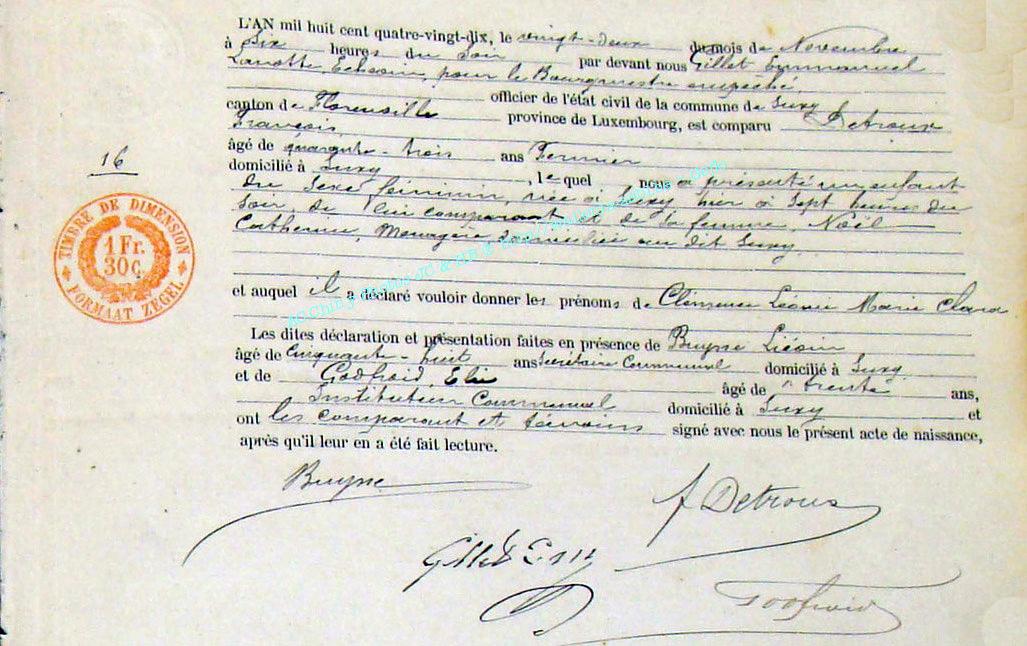 L'AN mil huit cent quatre-vingt-dix, le vingt-deux du mois de Novembre
à Six heures du Soir par devant nous Gillet Emmanuel
Echevin, pour le Bourgmestre empêché,
officier de l'état civil de la commune de Suxy
canton de Florenville province de Luxembourg, est comparu Detroux
Francois,
âgé de quarante-trois ans Fermier
domicilié à Suxy, le quel nous a présenté un enfant
du Sexe féminin, née à Suxy, hier à Sept heures du
Soir, de lui comparant et de sa femme, Noël
Catherine, Menagère domiciliée au dit Suxy
16
TIMBRE DE DIMENSION
1 Fr.
30 C.
FORMAAT ZEGEL
et auquel il a déclaré vouloir donner les prénoms de Clémence Léonie Marie Clara
Les dites déclaration et présentation faites en présence de Buysse
âgé de Cinquante-huit ans Secrétaire Communal domicilié à Suxy
et de Godfroid, Elie âgé de trente ans,
Instituteur Communal domicilié à Suxy et
ont les comparant et témoins signé avec nous le présent acte de naissance,
après qu'il leur en a été fait lecture.
Buysse
f Detroux
Gillet Em
Godfroid